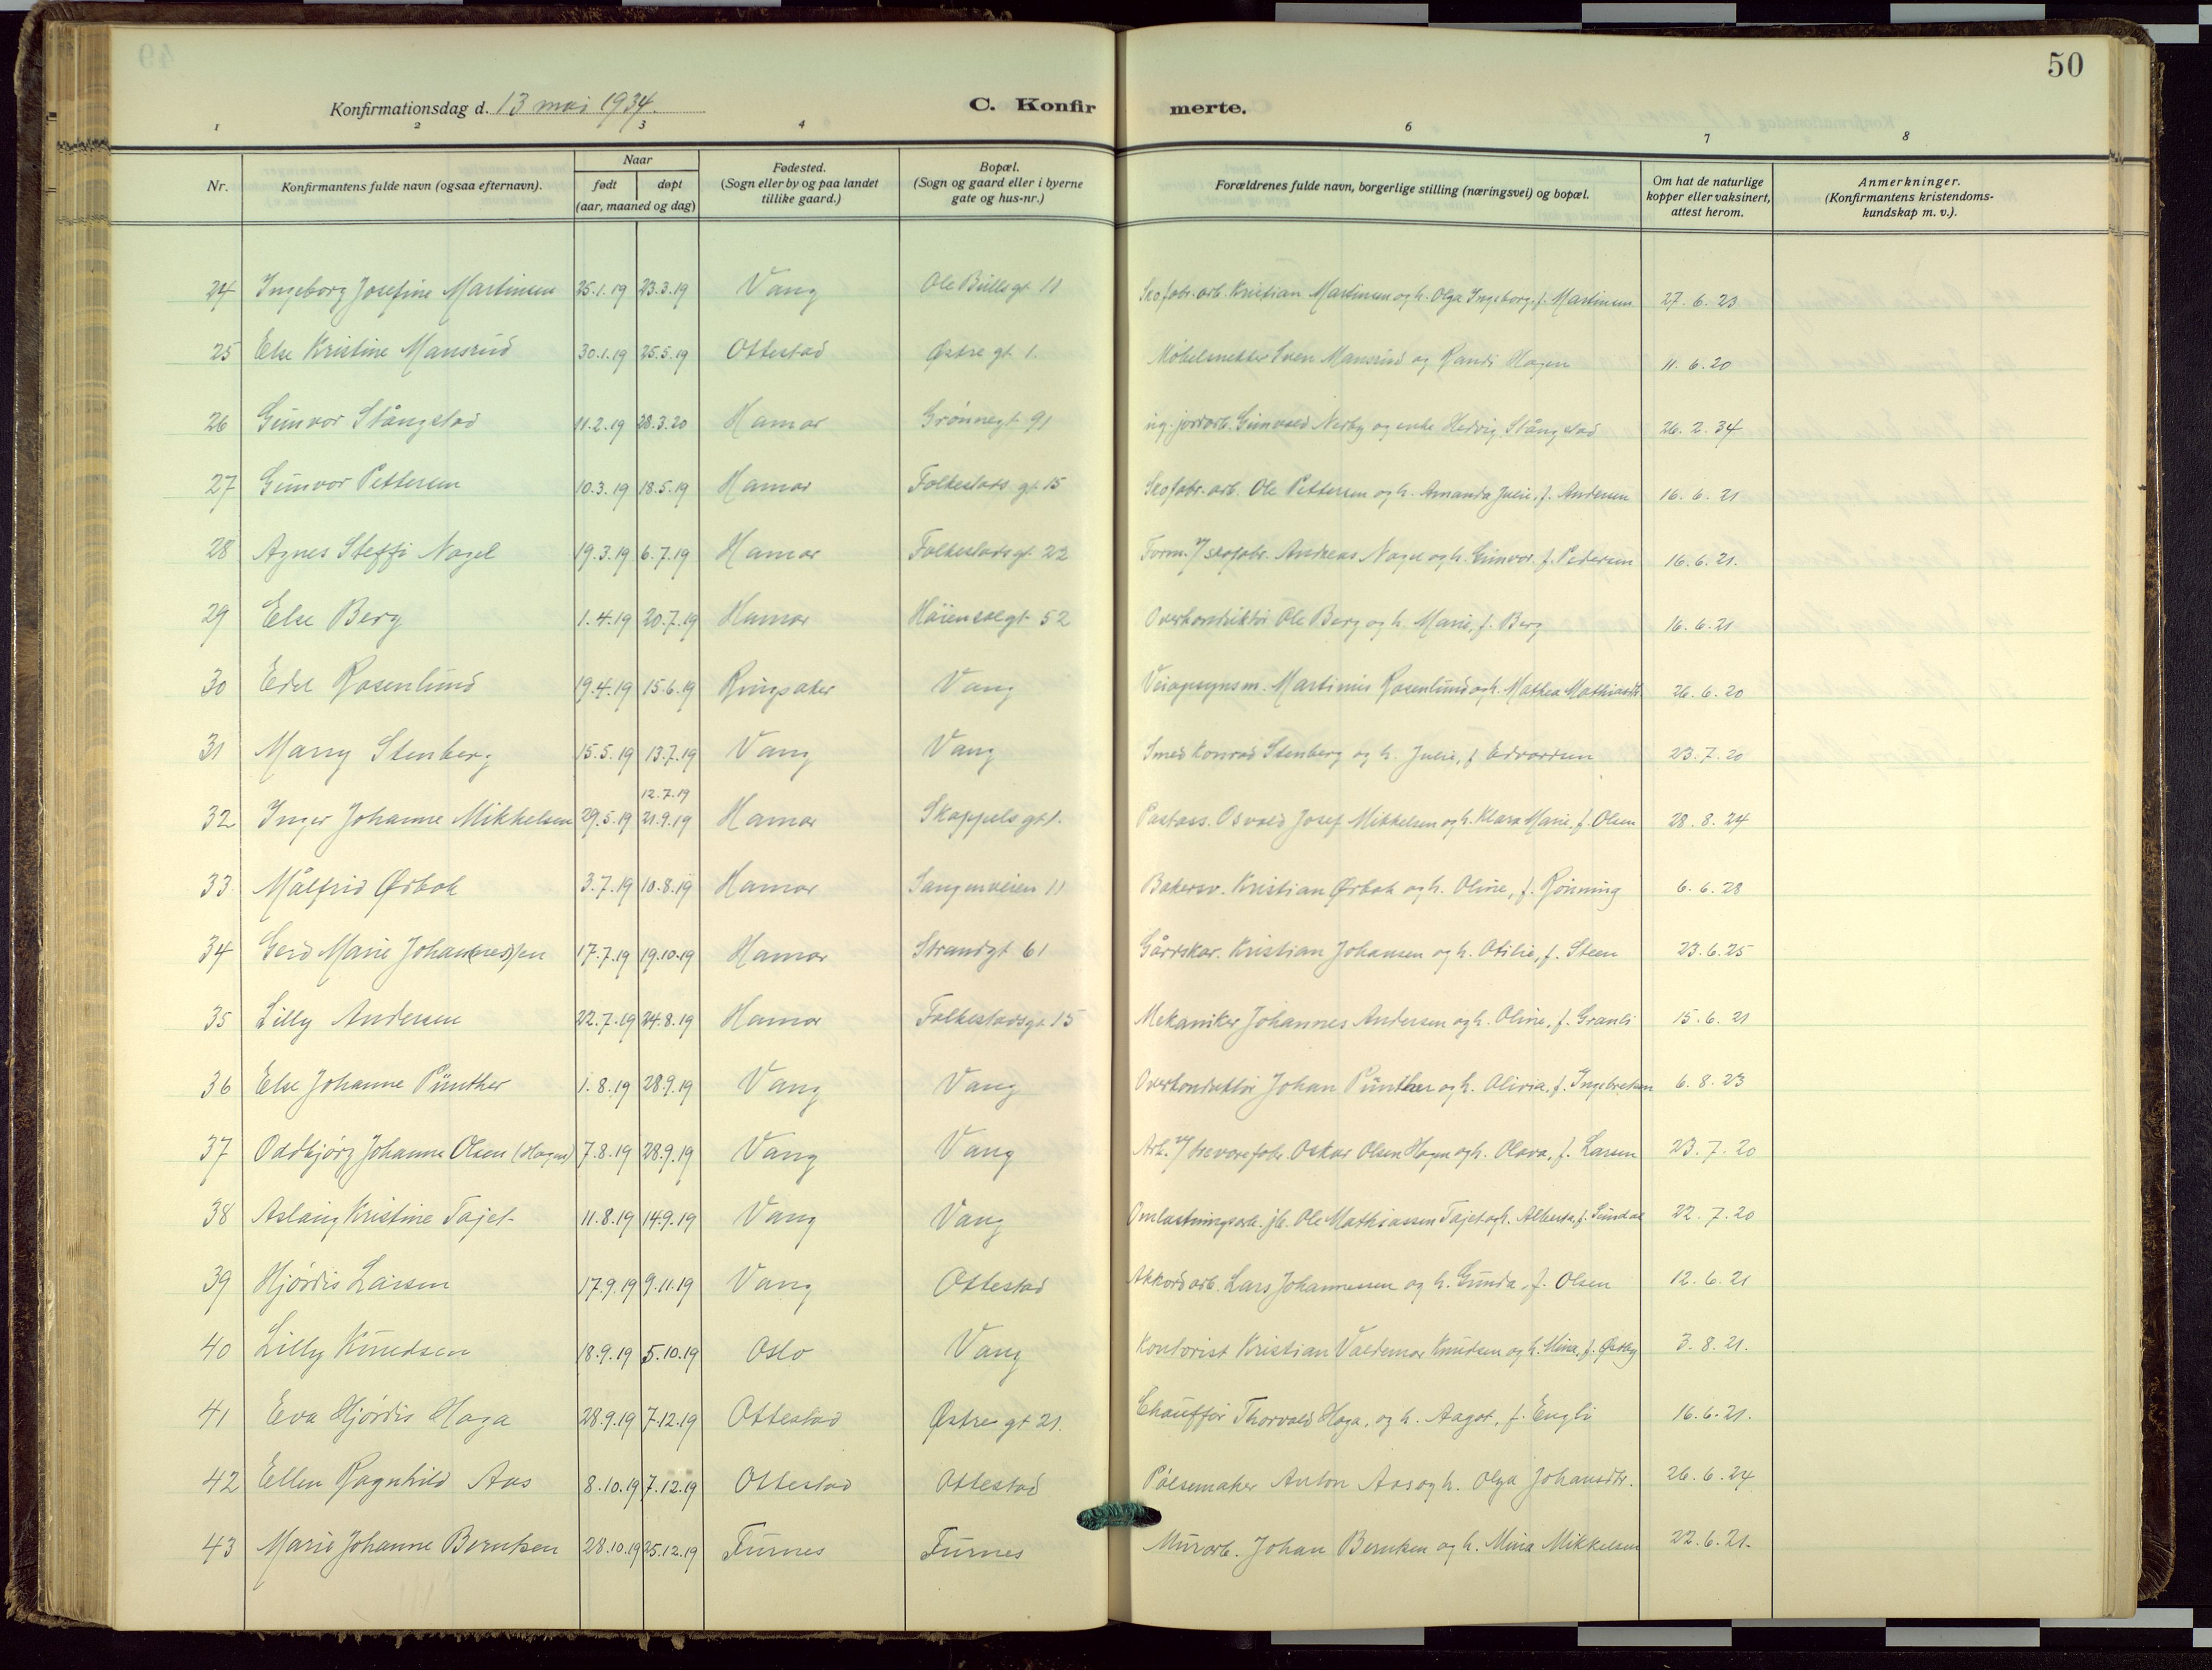 50
Konfirmationsdag d. 13 mai 1934.
C. Konfirmerte.
1 2 3 4 6 7 8
Nr. Konfirmantens fulde navn (ogsaa efternavn). Naar født døpt (aar, maaned og dag) Fødested. (Sogn eller by og paa landet tillike gaard.) Bopæl. (Sogn og gaard eller i byerne gate og hus-nr.) Forældrenes fulde navn, borgerlige stilling (næringsvei) og bopæl. Om hat de naturlige kopper eller vaksinert, attest herom. Anmerkninger. (Konfirmantens kristendomskundskap m. v.).
24 Ingeborg Josefine Martinsen 25.1.19 23.3.19 Vang Ole Bullsgt 11 Skofabr. arb. Kristian Martinsen og h. Olga Ingeborg f. Martinsen 27.6.23
25 Else Kristine Mansrud 30.1.19 25.5.19 Ottestad Østre gt. 1. Møbelsnekker Sven Mansrud og Randi Hagen 11.6.20
26 Gunvor Stångstad 11.2.19 28.3.20 Hamar Grønnegt 91 ug. jordarb. Gunvald Nerby og enke Hedvig Stångstad 26.2.34
27 Gunvor Pettersen 10.3.19 18.5.19 Hamar Folkestads gt 15 Skofabr. arb. Ole Pettersen og h. Amanda Julie, f. Andersen 16.6.21
28 Agnes Steffi Nagel 19.3.19 6.7.19 Hamar Folkestadsgt 22 Form. v/ skofabr. Andreas Nagel og h. Gunvor f. Pedersen 16.6.21.
29 Else Berg 1.4.19 20.7.19 Hamar Høiensalgt 52 Overkonduktør Ole Berg og h. Marie, f. Berg 16.6.21
30 Edel Rosenlund 19.4.19 15.6.19 Ringsaker Vang Veiopsynsm. Martinius Rosenlund og h. Mathea Mathiasdtr. 26.6.20
31 Marry Stenberg 15.5.19 13.7.19 Vang Vang Smed Konrad Stenberg og h. Julie, f. Edvardsen 23.7.20
32 Inger Johanne Mikkelsen 29.5.19 12.7.19 21.9.19 Hamar Skappels gt 1. Postass. Osvald Josef Mikkelsen og h. Klara Marie, f. Olsen 28.8.24
33 Målfrid Ørbak 3.7.19 10.8.19 Hamar Sangenveien 11 Bakersv. Kristian Ørbak og h. Oline, f. Rønning 6.6.28
34 Gerd Marie Johan(nes)sen 17.7.19 19.10.19 Hamar Strandgt 61 Gårdskar. Kristian Johansen og h. Otilie, f. Steen 23.6.25
35 Lilly Andersen 22.7.19 24.8.19 Hamar Folkestadsgt. 15 Mekaniker Johannes Andersen og h. Oline, f. Granli 15.6.21
36 Else Johanne Pünther 1.8.19 28.9.19 Vang Vang Overkonduktør Johan Pünther og h. Olivia, f. Ingebretsen 6.8.23
37 Oddbjørg Johanne Olsen (Hagen) 7.8.19 28.9.19 Vang Vang Arb. v/ trevarefabr. Oskar Olsen Hagen og h. Olava, f. Larsen 23.7.20
38 Aslaug Kristine Tajet 11.8.19 14.9.19 Vang Vang Omlastningsarb. jb. Ole Mathiassen Tajet og h. Alberta, f. Sundal 22.7.20
39 Hjørdis Larsen 17.9.19 9.11.19 Vang Ottestad Akkordarb. Lars Johannessen og h. Gunda, f. Olsen 12.6.21
40 Lilly Knudsen 18.9.19 5.10.19 Oslo Vang Kontorist Kristian Valdemar Knudsen og h. Mina, f. Østby 3.8.21.
41 Eva Hjørdis Haga 28.9.19 7.12.19 Ottestad Østre gt 21. Chauffør Thorvald Haga, og h. Aagot, f. Engli 16.6.21.
42 Ellen Ragnhild Aas 8.10.19 7.12.19 Ottestad Ottestad Pølsemaker Anton Aas og h. Olga Johansdtr. 26.6.24
43 Marie Johanne Berntsen 28.10.19 25.12.19 Furnes Furnes Murarb. Johan Berntsen og h. Mina Mikkelsen 22.6.21.